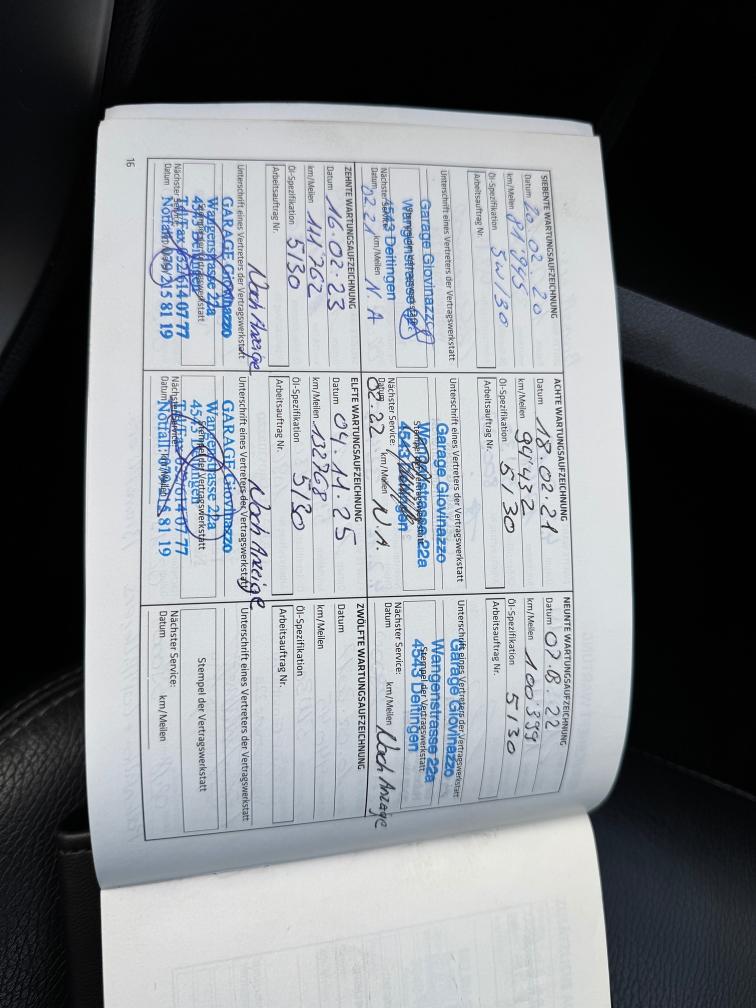 SIEBENTE WARTUNGSAUFZEICHNUNG
Datum 20.02.20
km/Meilen 81'945
Öl-Spezifikation 5W/30
Arbeitsauftrag Nr.
Unterschrift eines Vertreters der Vertragswerkstatt
Garage Giovinazzo
Wangenstrasse 22a
4543 Deitingen
Nächster Service:
Datum 02.21 km/Meilen N.A
ACHTE WARTUNGSAUFZEICHNUNG
Datum 18.02.21
km/Meilen 94'432
Öl-Spezifikation 5/30
Arbeitsauftrag Nr.
Unterschrift eines Vertreters der Vertragswerkstatt
Garage Giovinazzo
Wangenstrasse 22a
4543 Deitingen
Nächster Service:
Datum 02.22 km/Meilen N.A.
NEUNTE WARTUNGSAUFZEICHNUNG
Datum 8.22
km/Meilen 100'399
Öl-Spezifikation 5/30
Arbeitsauftrag Nr.
Unterschrift eines Vertreters der Vertragswerkstatt
Garage Giovinazzo
Wangenstrasse 22a
Stempel der Vertragswerkstatt
4543 Deitingen
Nächster Service:
Datum km/Meilen Nach Anzeige
ZEHNTE WARTUNGSAUFZEICHNUNG
Datum 16.02.23
km/Meilen 111'762
Öl-Spezifikation 5/30
Arbeitsauftrag Nr.
Nach Anzeige
Unterschrift eines Vertreters der Vertragswerkstatt
GARAGE Giovinazzo
Wangenstrasse 22a
4543 Deitingen
Stempel der Vertragswerkstatt
Tel/Fax 032/614 07 77
Nächster Service:
Notfall: 079/215 81 19
Datum km/Meilen
ELFTE WARTUNGSAUFZEICHNUNG
Datum 04.11.25
km/Meilen 132768
Öl-Spezifikation 5/30
Arbeitsauftrag Nr.
Nach Anzeige
Unterschrift eines Vertreters der Vertragswerkstatt
GARAGE Giovinazzo
Wangenstrasse 22a
Stempel der Vertragswerkstatt
4543 Deitingen
Tel/Fax 032/614 07 77
Nächster Service:
Notfall: 079/215 81 19
Datum km/Meilen
ZWÖLFTE WARTUNGSAUFZEICHNUNG
Datum
km/Meilen
Öl-Spezifikation
Arbeitsauftrag Nr.
Unterschrift eines Vertreters der Vertragswerkstatt
Stempel der Vertragswerkstatt
Nächster Service:
Datum km/Meilen
16